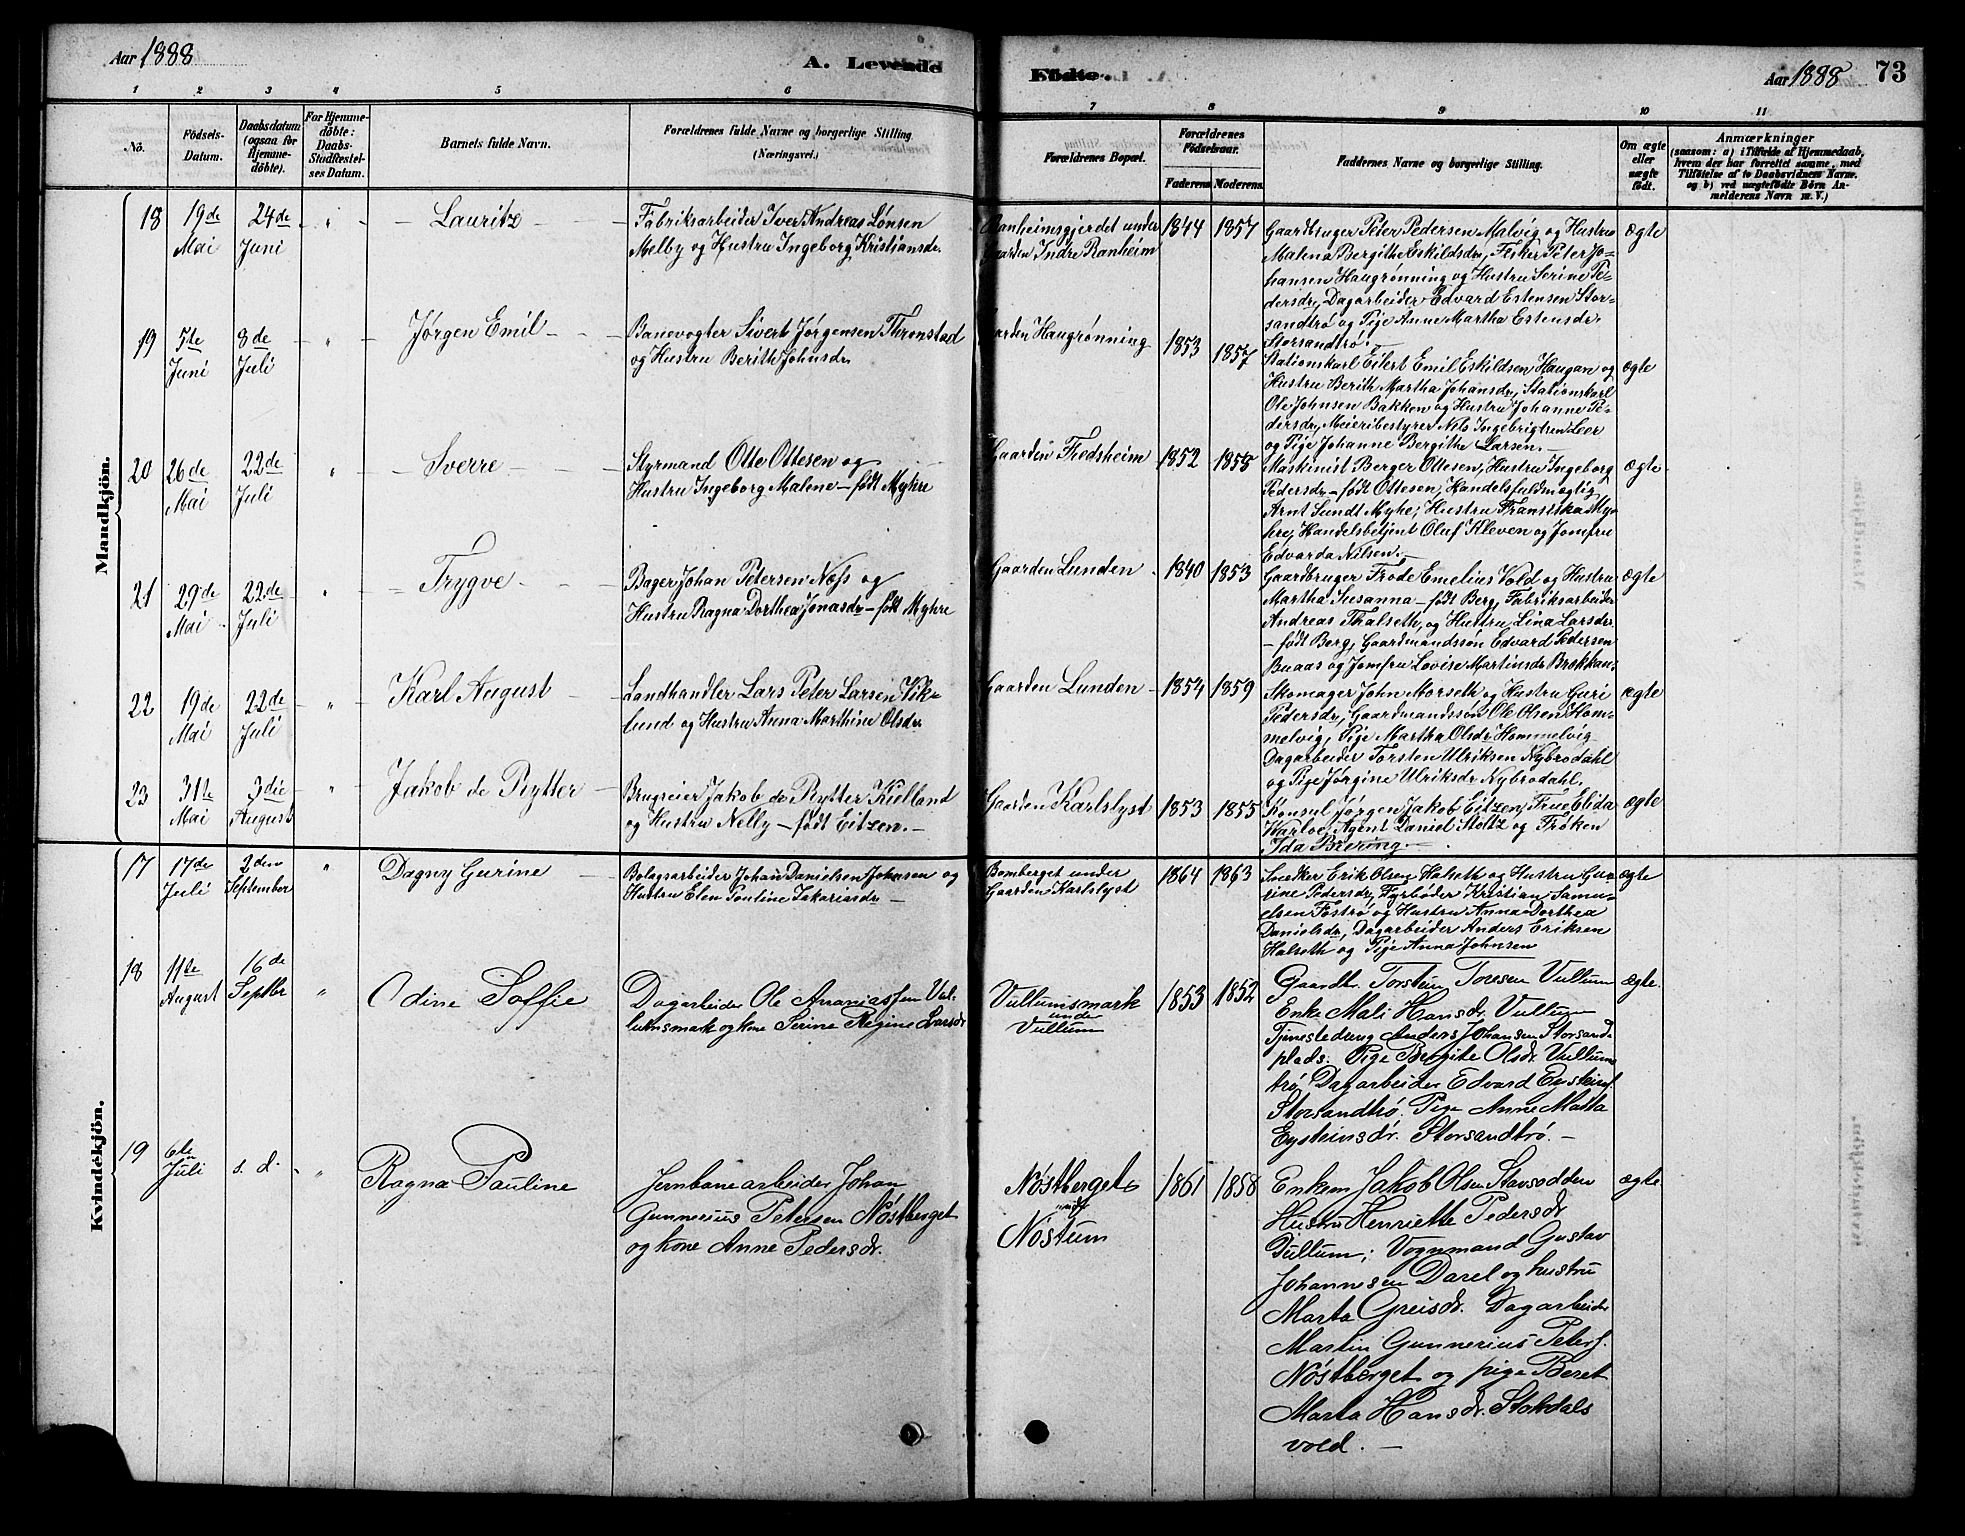 Aar 1888
A. Levende
Fødte.
Aar 1888
73
1 2 3 4 5 6 7 8 9 10 11
No.
Fødsels-
Datum.
Daabsdatum
(ogsaa for
Hjemme-
døbte).
For Hjemme-
døbte:
Daabs-
Stadfæstel-
ses Datum.
Barnets fulde Navn.
Forældrenes fulde Navne og borgerlige Stilling.
(Næringsvei.)
Forældrenes Bopæl.
Forældrenes
Fødselsaar.
Faderens. Moderens.
Faddernes Navne og borgerlige Stilling.
Om ægte
eller
uægte
født.
Anmærkninger
(saasom: a) i Tilfælde af Hjemmedaab,
hvem der har forrettet samme, med
Tilføielse af to Daabsvidners Navne.
og b) ved uægtefødte Børn An-
melderens Navn m. V.)
Mandkjön.
18
19de
Mai
24de
Juni
"
Lauritz
Fabriksarbeider Iver Andreas Lønsen
Melby og Hustru Ingeborg Kristiansdr.
Ranheimsgjerdet under
Gaarden Indre Ranheim
1844
1857
Gaardbruger Peter Pedersen Malvig og Hustru
Malena Bergithe Eskildsdr, Fisker Peter Jo-
hansen Haugrønning og Hustru Serine Pe-
dersdr, Dagarbeider Edvard Estensen Stor-
sandtrø og Pige Anne Martha Estensdr.
Storsandtrø.
ægte
19
5te
Juni
8de
Juli
"
Jørgen Emil
Banevogter Sivert Jørgensen Thronstad
og Hustru Berith Johnsdr
Gaarden Haugrønning
1853
1857
Stationskarl Eilert Emil Eskildsen Haugan og
Hustru Berith Martha Johansdr, Stationskarl
Ole Johnsen Bakken og Hustru Johanne Pe-
dersdr, Meieribestyrer Nils Ingebrigtsen Leer
og Pige Johanne Bergithe Larsen.
ægte
20
26de
Mai
22de
Juli
"
Sverre
Styrmand Otte Ottesen og
Hustru Ingeborg Malene – født Myhre
Gaarden Fredsheim
1852
1855
Maskinist Berger Ottesen, Hustru Ingeborg
Pedersdr – født Ottesen, Handelsfuldmægtig
Arnt Sundt Myhe, Hustru Fransiska My-
hre, Handelsbetjent Oluf Kleven og Jomfru
Edvarda Nilsen.
ægte
21
29de
Mai
22de
Juli
"
Trygve
Bager Johan Petersen Næss og
Hustru Ragna Dorthea Jonasdr – født Myhre
Gaarden Lunden
1840
1853
Gaardbruger Frode Emelius Vold og Hustru
Martha Susanna – født Berg, Fabriksarbeider
Andreas Thalseth, og Hustru Lina Larsdr
– født Berg, Gaardmandssøn Edvard Pedersen
Buaas og Jomfru Lovise Martinsdr Brekkan.
ægte
22
19de
Mai
22de
Juli
"
Karl August
Landhandler Lars Peter Larsen Vik-
lund og Hustru Anna Marthine Olsdr
Gaarden Lunden
1854
1859
Skomager John Morseth og Hustru Guri
Pedersdr, Gaardmandssøn Ole Olsen Hom-
melvig, Pige Martha Olsdr Hommelvig
Dagarbeider Torsten Ulriksen Nybrodahl
og Pige Jørgine Ulriksdr Nybrodahl.
ægte
23
31te
Mai
3die
August
"
Jakob de Rytter
Brugseier Jakob de Rytter Kielland
og Hustru Nelly – født Eitzen.
Gaarden Karlslyst
1853
1855
Konsul Jørgen Jakob Eitzen, Frue Elida
Karloe, Agent Daniel Stoltz og Frøken
Ida Brering
ægte
Kvindekjön.
17
17de
Juli
2den
September
"
Dagny Gurine
Bolagsarbeider Johan Danielsen Johnsen og
Hustru Elen Pouline Zakariasdr
Bomberget under
Gaarden Karlslyst
1864
1863
Snedker Erik Olsen Halseth og Hustru Gu-
rine Pedersdr, Fyrbøder Kristian Samu-
elsen Fostrø og Hustru Anna Dorthea
Danielsdr, Dagarbeider Anders Eriksen
Halseth og Pige Anna Johnsen
ægte
18
11te
August
16de
Septbr
"
Odine Soffie
Dagarbeider Ole Ananiassen Vul-
lumsmark og kone Serine Regine Larsdr
Vullumsmark
under
Vullum
1853
1852
Gaardbr. Torsten Toresen Vullum
Enke Mali Hansdr. Vullum
Tjenestedreng Anders Johansen Storsand-
plads. Pige Bergite Olsdr. Vullums
trø, Dagarbeider Edvard Eysteins.
Storsandtrø. Pige Anne Marta
Eysteinsdr. Storsandtrø.
ægte
19
6te
Juli
s. d.
"
Ragna Pauline
Jernbanearbeider Johan
Gunnerius Petersen Nøstberget
og kone Anne Pedersdr.
Nøstberget
under
Nøstum
1861
1858
Enkem. Jakob Olsen Stavsodden
Hustru Henriette Pedersdr
Vullum; Vognmand Gustav
Johannesen Darel og hustru
Marta Greisdr. Dagarbeider
Martin Gunnerius Peters.
Nøstberget og pige Beret
Marta Hansdr. Stokdals
vold.
ægte